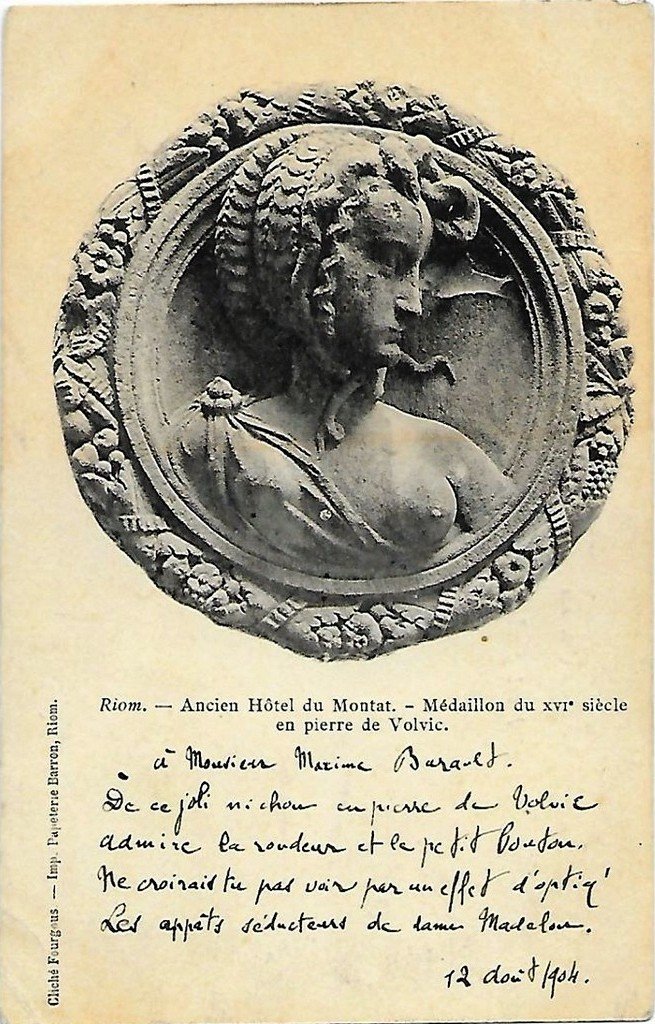 Riom. — Ancien Hôtel du Montat. - Médaillon du XVIe siècle
en pierre de Volvic.
à Monsieur Maxime Barault.
De ce joli nichon en pierre de Volvic
admire la rondeur et le petit bouton.
Ne croirais tu pas voir par un effet d'optiq'
Les appâts séducteurs de dame Madelon.
12 août 1904.
Cliché Fourgous — Imp. Papeterie Barron, Riom.